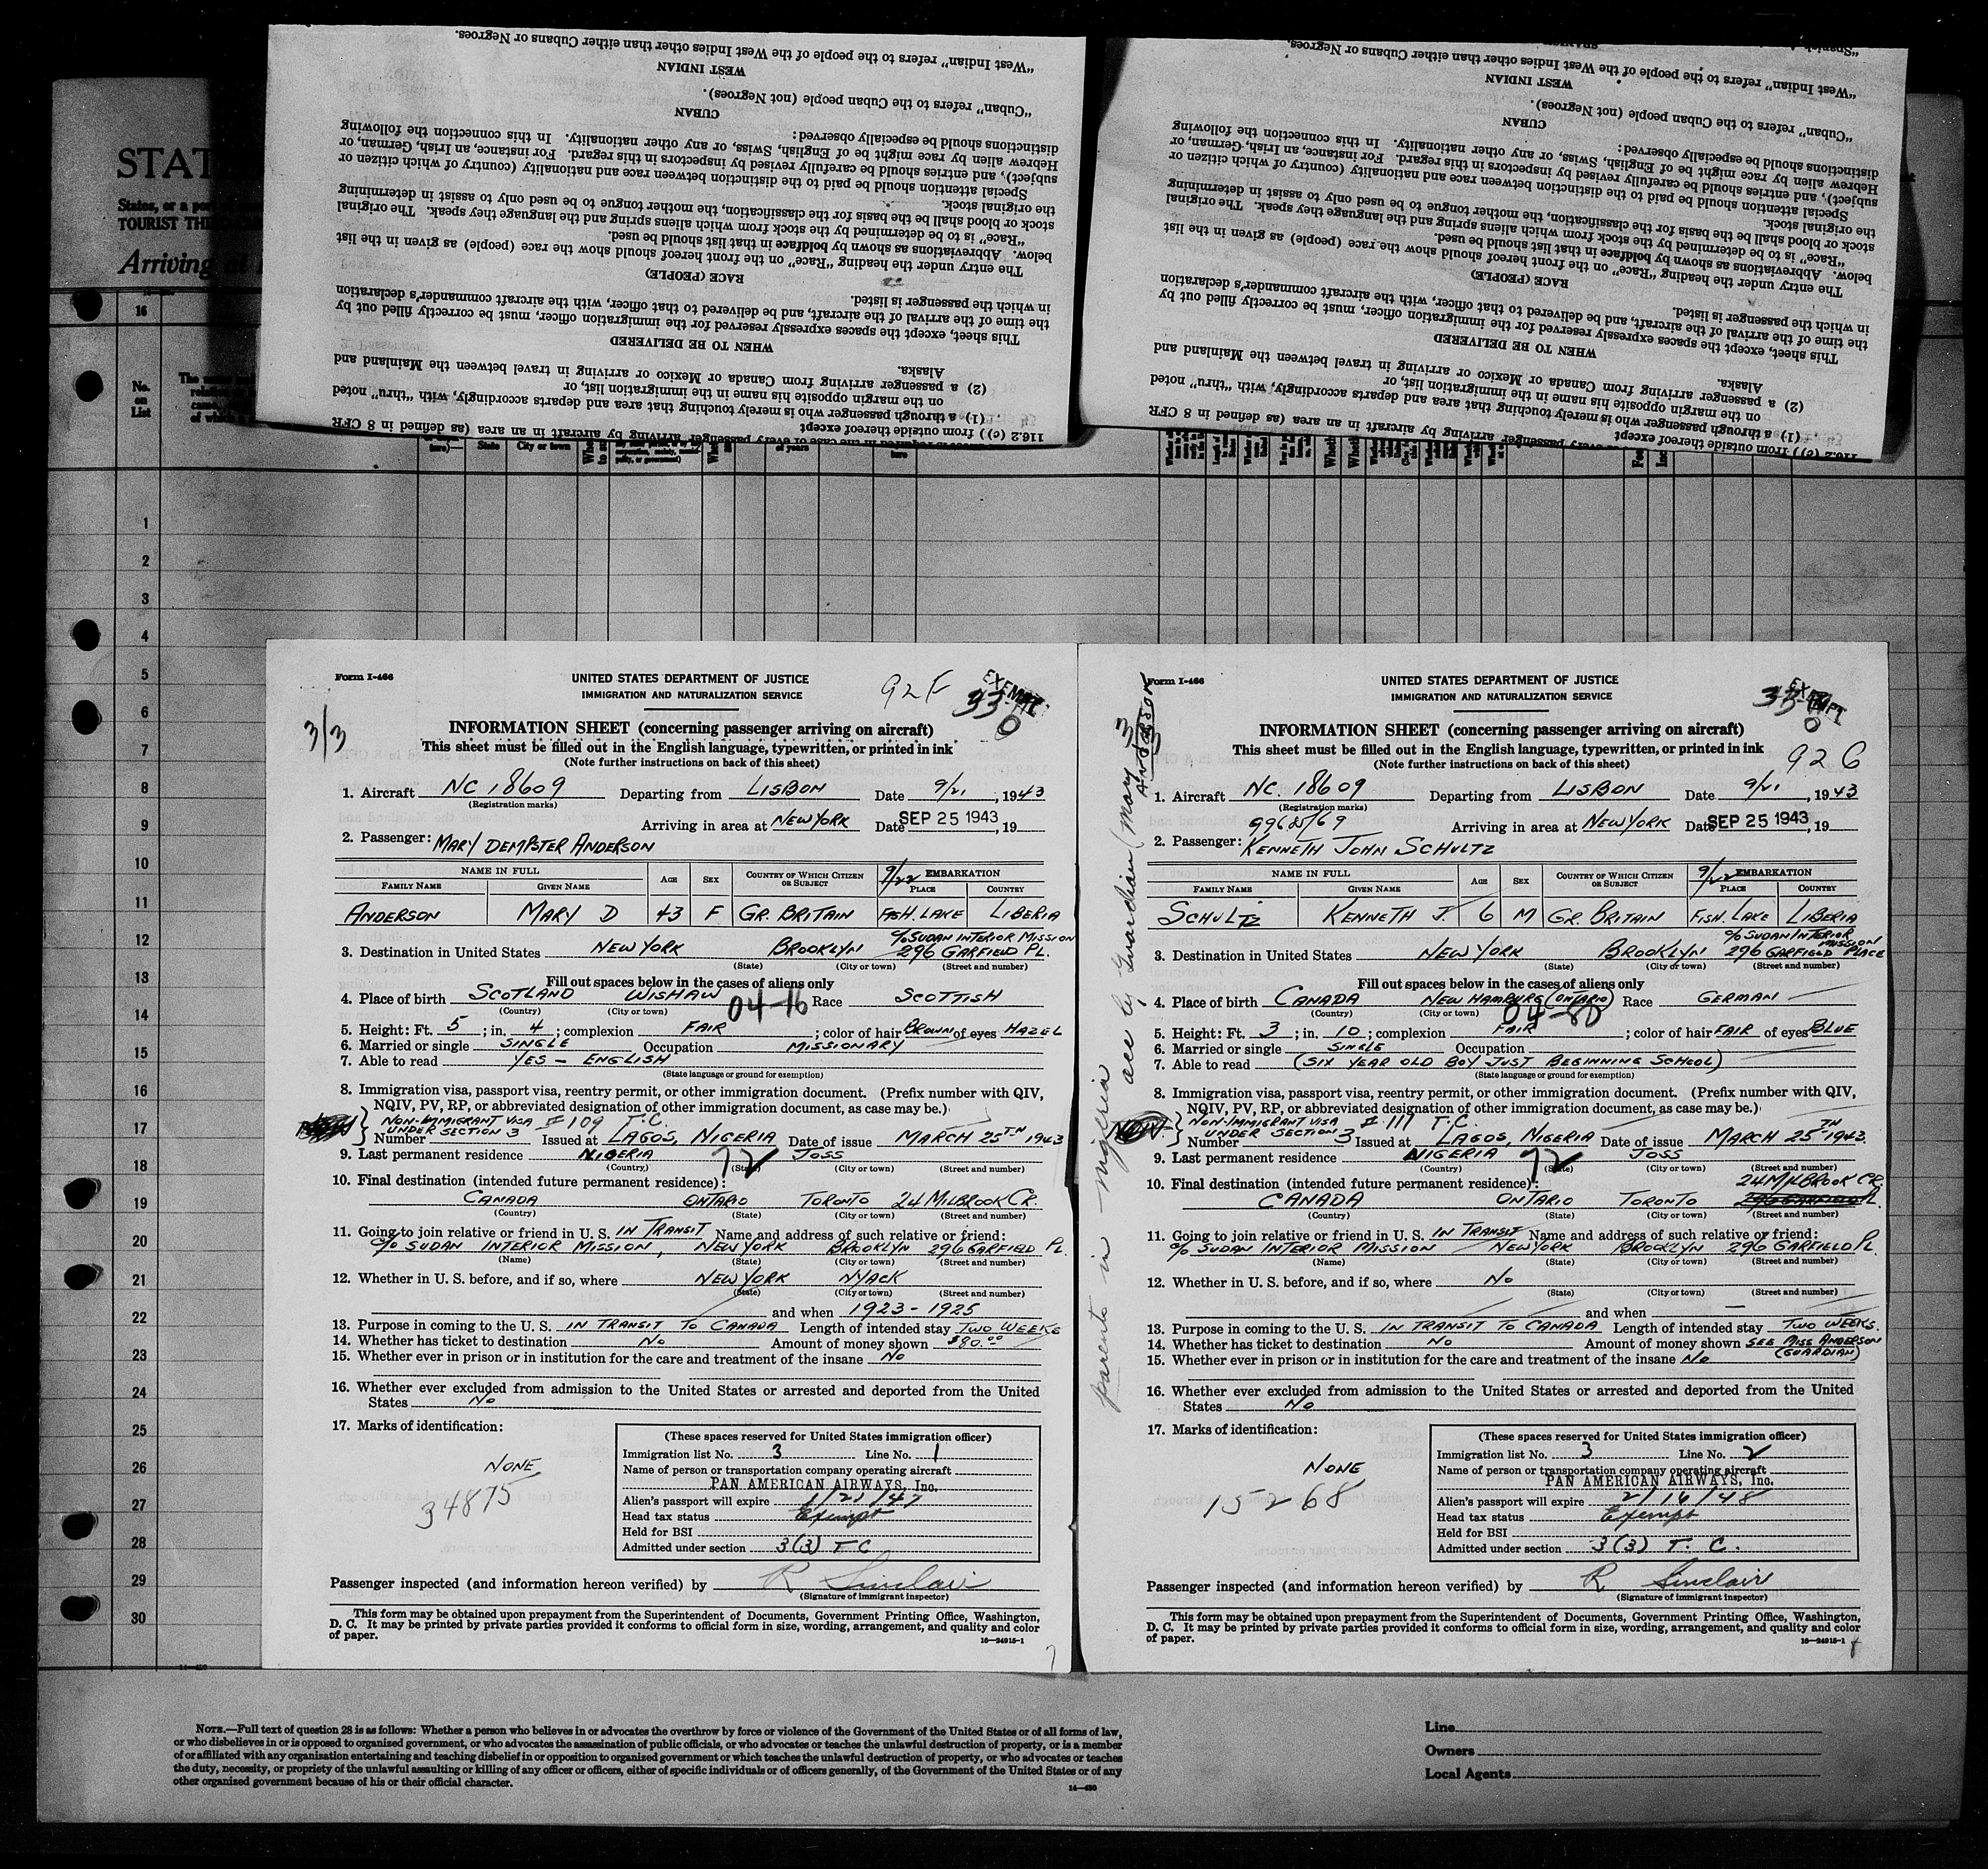 "West Indian" refers to the people of the West Indies other than either Cubans or Negroes.
WEST INDIAN
"Cuban" refers to the Cuban people (not Negroes).
CUBAN
distinctions should be especially observed:
Hebrew alien by race might be of English, Swiss, or any other nationality. In this connection the following
subject), and entries should be carefully revised by inspectors in this regard. For instance, an Irish, German, or
Special attention should be paid to the distinction between race and nationality (country of which citizen or
the original stock.
stock or blood shall be the basis for the classification, the mother tongue to be used only to assist in determining
"Race" is to be determined by the stock from which aliens spring and the language they speak. The original
below. Abbreviations as shown by boldface in that list should be used.
The entry under the heading "Race" on the front hereof should show the race (people) as given in the list
RACE (PEOPLE)
in which the passenger is listed.
the time of the arrival of the aircraft, and be delivered to that officer, with the aircraft commander's declaration
This sheet, except the spaces expressly reserved for the immigration officer, must be correctly filled out by
WHEN TO BE DELIVERED
Alaska.
(2) a passenger arriving from Canada or Mexico or arriving in travel between the Mainland and
on the margin opposite his name in the immigration list, or
(1) a through passenger who is merely touching that area and departs accordingly, with "thru" noted
116.2 (c)) from outside thereof except
every passenger arriving by aircraft in an area (as defined in 8 CFR
"West Indian" refers to the people of the West Indies other than either Cubans or Negroes.
WEST INDIAN
"Cuban" refers to the Cuban people (not Negroes).
CUBAN
distinctions should be especially observed:
Hebrew alien by race might be of English, Swiss, or any other nationality. In this connection the following
subject), and entries should be carefully revised by inspectors in this regard. For instance, an Irish, German, or
Special attention should be paid to the distinction between race and nationality (country of which citizen or
the original stock.
stock or blood shall be the basis for the classification, the mother tongue to be used only to assist in determining
"Race" is to be determined by the stock from which aliens spring and the language they speak. The original
below. Abbreviations as shown by boldface in that list should be used.
The entry under the heading "Race" on the front hereof should show the race (people) as given in the list
RACE (PEOPLE)
in which the passenger is listed.
the time of the arrival of the aircraft, and be delivered to that officer, with the aircraft commander's declaration
This sheet, except the spaces expressly reserved for the immigration officer, must be correctly filled out by
WHEN TO BE DELIVERED
Alaska.
(2) a passenger arriving from Canada or Mexico or arriving in travel between the Mainland and
on the margin opposite his name in the immigration list, or
(1) a through passenger who is merely touching that area and departs accordingly, with "thru" noted
116.2 (c)) from outside thereof except
every passenger arriving by aircraft in an area (as defined in 8 CFR
STAT
States, or a por
TOURIST THI
Arriving at
16
No. on List
State City or town
1
2
3
4
5
6
7
8
9
10
11
12
13
14
15
16
17
18
19
20
21
22
23
24
25
26
27
28
29
30
Form I-466
UNITED STATES DEPARTMENT OF JUSTICE
IMMIGRATION AND NATURALIZATION SERVICE
92F
EXEMPT
33
0
3/3
INFORMATION SHEET (concerning passenger arriving on aircraft)
This sheet must be filled out in the English language, typewritten, or printed in ink
(Note further instructions on back of this sheet)
1. Aircraft NC 18609 Departing from LISBON Date 9/21, 1943
(Registration marks)
Arriving in area at NEW YORK Date SEP 25 1943, 19
2. Passenger: MARY DEMPSTER ANDERSON
NAME IN FULL AGE SEX COUNTRY OF WHICH CITIZEN OR SUBJECT 9/22 EMBARKATION
FAMILY NAME GIVEN NAME PLACE COUNTRY
ANDERSON MARY D 43 F GR. BRITAIN FISH. LAKE LIBERIA
% SUDAN INTERIOR MISSION
3. Destination in United States NEW YORK BROOKLYN 296 GARFIELD PL.
(State) (City or town) (Street and number)
Fill out spaces below in the cases of aliens only
4. Place of birth SCOTLAND WISHAW 04-16 Race SCOTTISH
(Country) (City or town)
5. Height: Ft. 5; in. 4; complexion FAIR; color of hair BROWN of eyes HAZEL
6. Married or single SINGLE Occupation MISSIONARY
7. Able to read YES - ENGLISH
(State language or ground for exemption)
8. Immigration visa, passport visa, reentry permit, or other immigration document. (Prefix number with QIV,
NQIV, PV, RP, or abbreviated designation of other immigration document, as case may be.)
NON-IMMIGRANT VISA # 109 T.C.
UNDER SECTION 3
Number Issued at LAGOS, NIGERIA Date of issue MARCH 25TH 1943
9. Last permanent residence NIGERIA 72 JOSS
(Country) (State) (City or town) (Street and number)
10. Final destination (intended future permanent residence):
CANADA ONTARIO TORONTO 24 MILBROOK CR.
(Country) (State) (City or town) (Street and number)
11. Going to join relative or friend in U. S. IN TRANSIT Name and address of such relative or friend:
% SUDAN INTERIOR MISSION, NEW YORK BROOKLYN 296 GARFIELD PL.
(Name) (State) (City or town) (Street and number)
12. Whether in U. S. before, and if so, where NEW YORK NYACK
(State) (City or town) (Street and number)
and when 1923 - 1925
13. Purpose in coming to the U. S. IN TRANSIT TO CANADA Length of intended stay TWO WEEKS
14. Whether has ticket to destination NO Amount of money shown $80.00
15. Whether ever in prison or in institution for the care and treatment of the insane NO
16. Whether ever excluded from admission to the United States or arrested and deported from the United
States NO
17. Marks of identification:
NONE
34875
(These spaces reserved for United States immigration officer)
Immigration list No. 3 Line No. 1
Name of person or transportation company operating aircraft
PAN AMERICAN AIRWAYS, Inc.
Alien's passport will expire 1/21/47
Head tax status Exempt
Held for BSI
Admitted under section 3(3) T C
Passenger inspected (and information hereon verified) by R Sinclair
(Signature of immigrant inspector)
This form may be obtained upon prepayment from the Superintendent of Documents, Government Printing Office, Washington,
D. C. It may be printed by private parties provided it conforms to official form in size, wording, arrangement, and quality and color
of paper.
16—24915-1
Form I-466
UNITED STATES DEPARTMENT OF JUSTICE
IMMIGRATION AND NATURALIZATION SERVICE
EXEMPT
33
0
INFORMATION SHEET (concerning passenger arriving on aircraft)
This sheet must be filled out in the English language, typewritten, or printed in ink
(Note further instructions on back of this sheet)
92 G
parents in Nigeria
acc by Guardian (Mary ANDERSON
3
3
1. Aircraft NC. 18609 Departing from LISBON Date 9/21, 1943
(Registration marks)
Arriving in area at NEW YORK Date SEP 25 1943, 19
2. Passenger: KENNETH JOHN SCHULTZ
NAME IN FULL AGE SEX COUNTRY OF WHICH CITIZEN OR SUBJECT 9/22 EMBARKATION
FAMILY NAME GIVEN NAME PLACE COUNTRY
SCHULTZ KENNETH J. 6 M GR. BRITAIN FISH. LAKE LIBERIA
% SUDAN INTERIOR MISSION
3. Destination in United States NEW YORK BROOKLYN 296 GARFIELD PLACE
(State) (City or town) (Street and number)
Fill out spaces below in the cases of aliens only
4. Place of birth CANADA NEW HAMBURG (ONTARIO) Race GERMAN
(Country) (City or town)
04-80
5. Height: Ft. 3; in. 10; complexion FAIR; color of hair FAIR of eyes BLUE
6. Married or single SINGLE Occupation
7. Able to read (SIX YEAR OLD BOY JUST BEGINNING SCHOOL)
(State language or ground for exemption)
8. Immigration visa, passport visa, reentry permit, or other immigration document. (Prefix number with QIV,
NQIV, PV, RP, or abbreviated designation of other immigration document, as case may be.)
NON-IMMIGRANT VISA # 111 T.C.
UNDER SECTION 3
Number Issued at LAGOS, NIGERIA Date of issue MARCH 25TH 1943.
9. Last permanent residence NIGERIA 72 JOSS
(Country) (State) (City or town) (Street and number)
10. Final destination (intended future permanent residence): 24 MILBROOK CR.
CANADA ONTARIO TORONTO 296 GARFIELD PL.
(Country) (State) (City or town) (Street and number)
11. Going to join relative or friend in U. S. IN TRANSIT Name and address of such relative or friend:
% SUDAN INTERIOR MISSION NEW YORK BROOKLYN 296 GARFIELD PL.
(Name) (State) (City or town) (Street and number)
12. Whether in U. S. before, and if so, where NO
(State) (City or town) (Street and number)
and when —
13. Purpose in coming to the U. S. IN TRANSIT TO CANADA Length of intended stay TWO WEEKS.
14. Whether has ticket to destination NO Amount of money shown SEE MISS ANDERSON
(GUARDIAN)
15. Whether ever in prison or in institution for the care and treatment of the insane NO
16. Whether ever excluded from admission to the United States or arrested and deported from the United
States NO
17. Marks of identification:
NONE
15268
(These spaces reserved for United States immigration officer)
Immigration list No. 3 Line No. 2
Name of person or transportation company operating aircraft
PAN AMERICAN AIRWAYS, Inc.
Alien's passport will expire 2/16/48
Head tax status Exempt
Held for BSI
Admitted under section 3(3) T. C.
Passenger inspected (and information hereon verified) by R Sinclair
(Signature of immigrant inspector)
This form may be obtained upon prepayment from the Superintendent of Documents, Government Printing Office, Washington,
D. C. It may be printed by private parties provided it conforms to official form in size, wording, arrangement, and quality and color
of paper.
16—24915-1
NOTE.—Full text of question 28 is as follows: Whether a person who believes in or advocates the overthrow by force or violence of the Government of the United States or of all forms of law,
or who disbelieves in or is opposed to organized government, or who advocates the assassination of public officials, or who advocates or teaches the unlawful destruction of property, or is a member
of or affiliated with any organization entertaining and teaching disbelief in or opposition to organized government or which teaches the unlawful destruction of property, or who advocates or teaches
the duty, necessity, or propriety of the unlawful assaulting or killing of any officer or officers, either of specific individuals or of officers generally, of the Government of the United States or of any
other organized government because of his or their official character.
14—430
Line
Owners
Local Agents